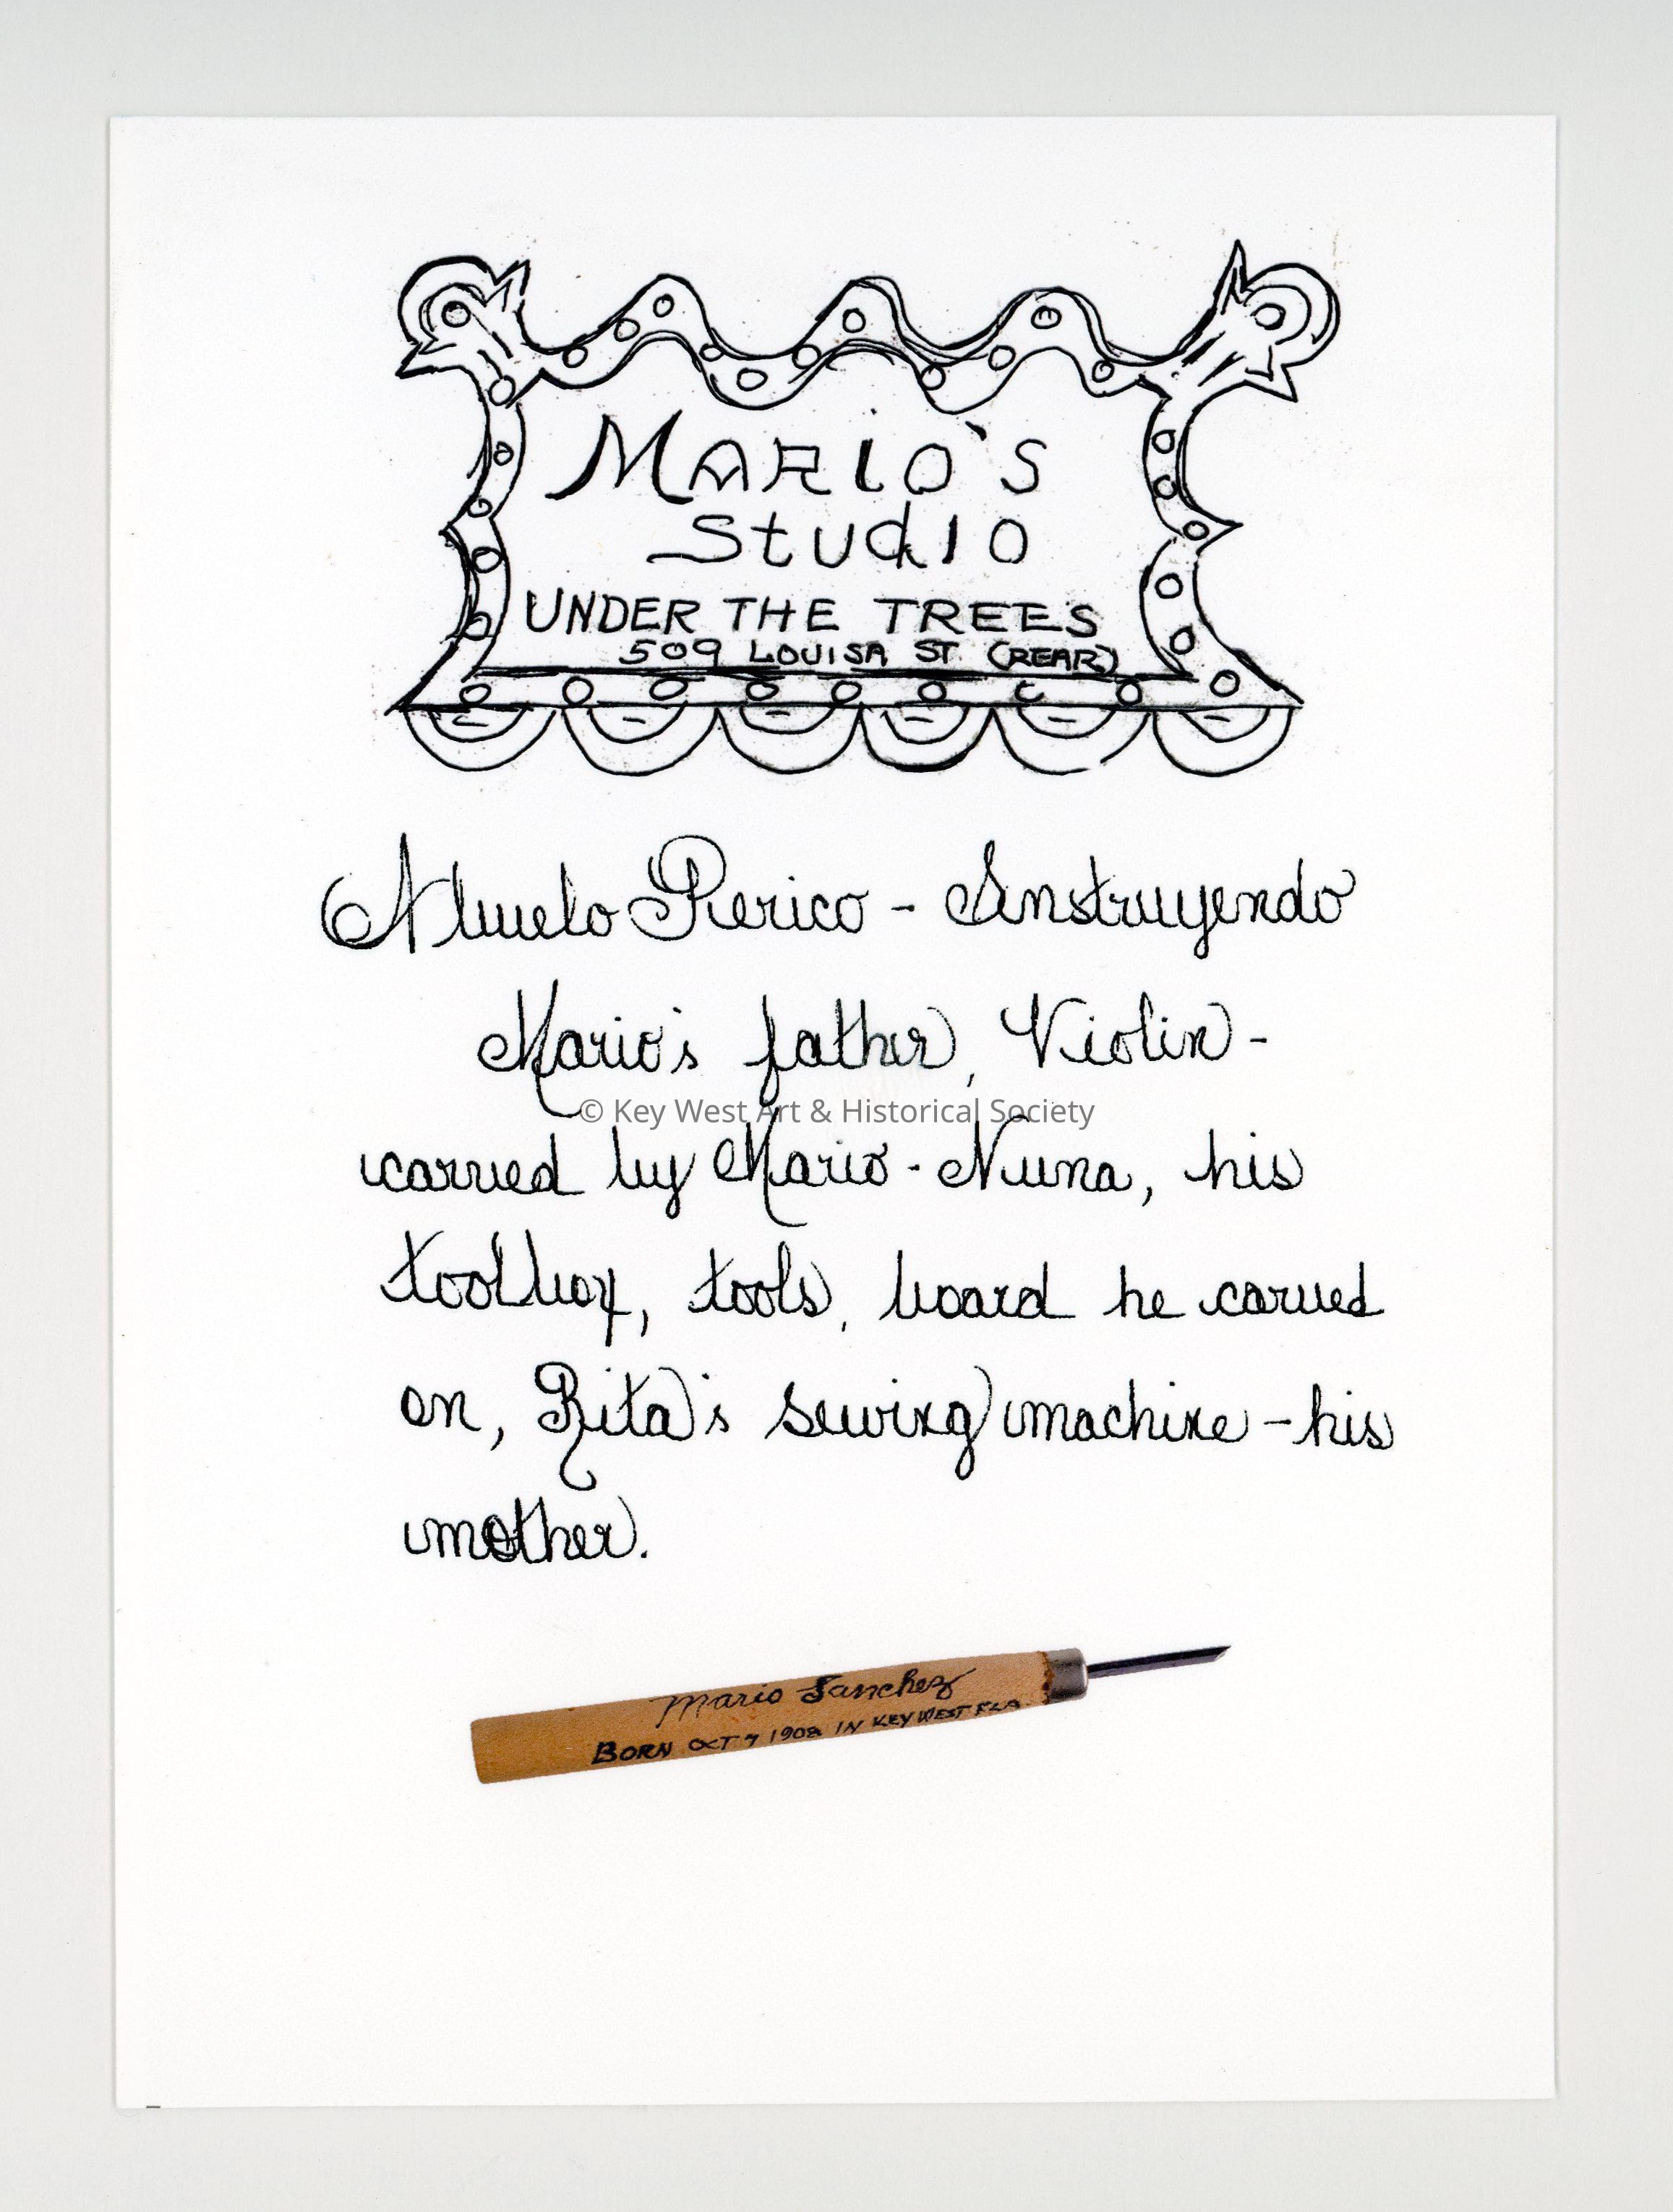 Mario's
Studio
UNDER THE TREES
509 LOUISA ST. (REAR)
Abuelo Perico - Instruyendo
Mario's father, Violin -
© Key West Art & Historical Society
carved by Mario - Nuna, his
toolbox, tools, board he carved
on, Rita's sewing machine - his
mother.
Mario Sanchez
BORN OCT 7 1908 IN KEY WEST FLA